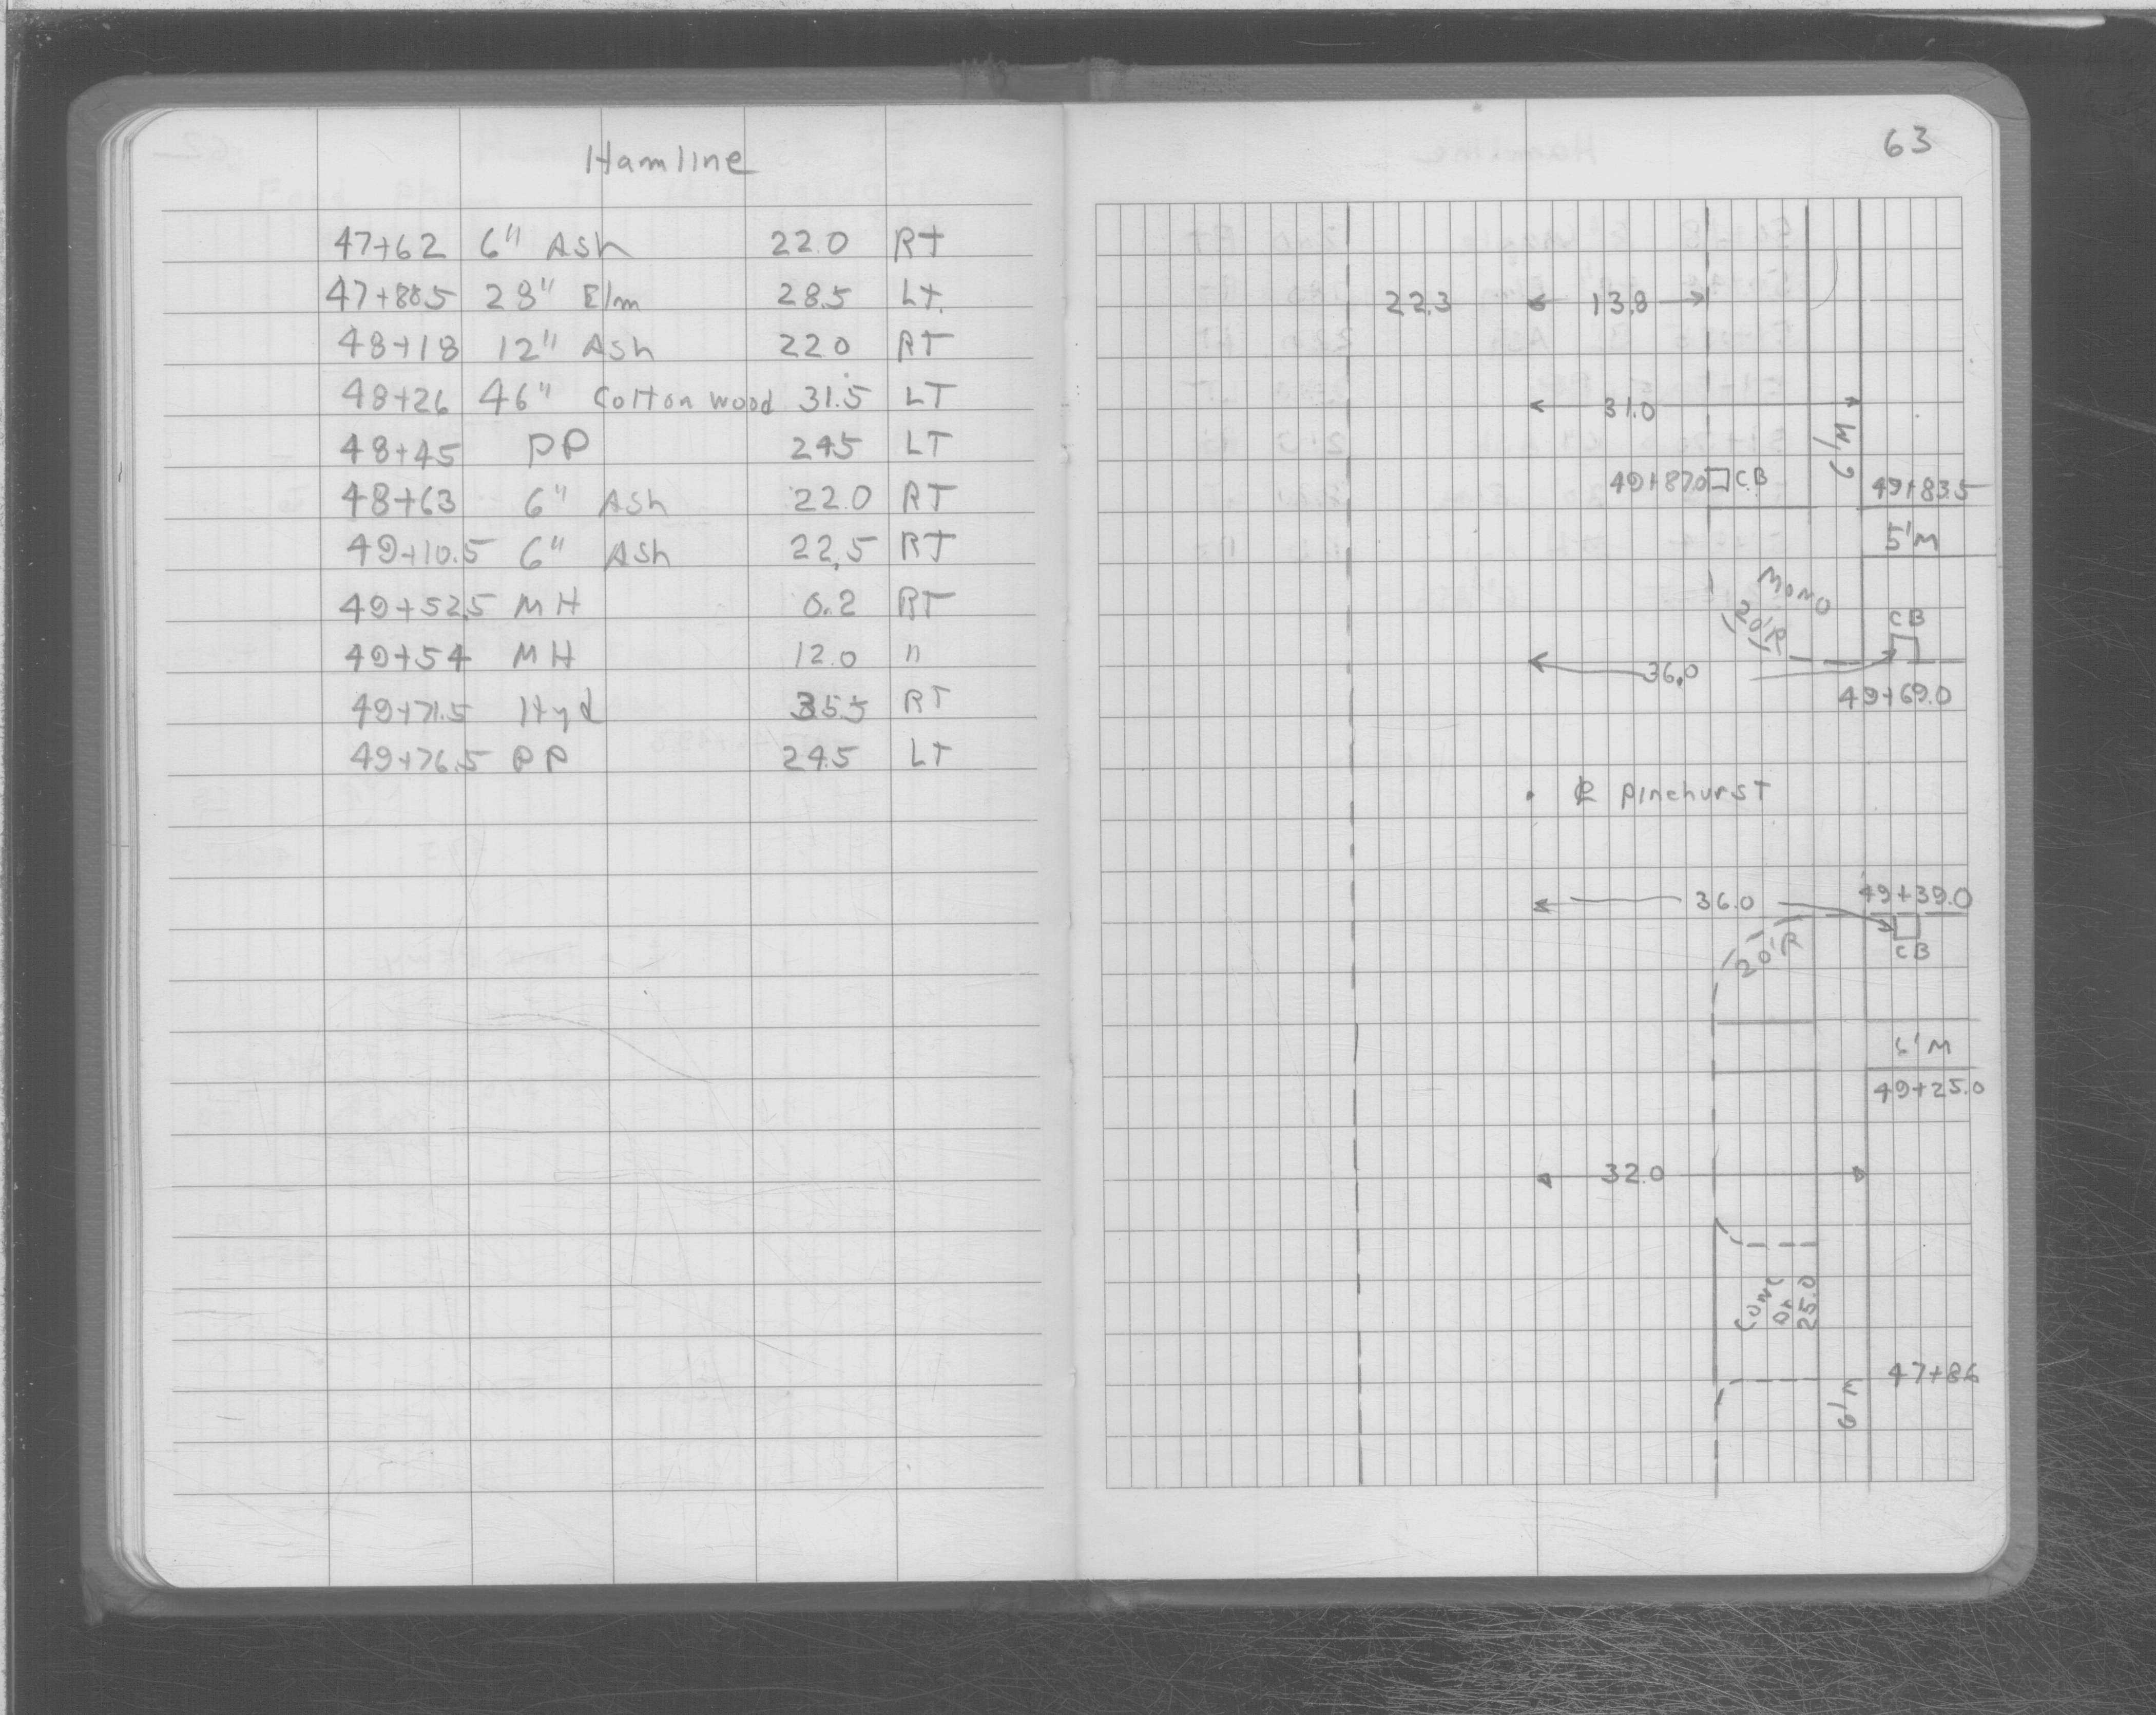 Hamline
47+62 6" Ash 22.0 RT
47+88.5 28" Elm 28.5 LT.
48+18 12" Ash 22.0 RT
48+26 46" Cottonwood 31.5 LT
48+45 PP 24.5 LT
48+63 6" Ash 22.0 RT
49+10.5 6" Ash 22.5 RT
49+52.5 MH 0.2 RT
49+54 MH 12.0 "
49+71.5 Hyd 35.5 RT
49+76.5 PP 24.5 LT
63
22.3 13.8
31.0
6'M
49+87.0 CB 49+83.5
5'M
Mono
20'R
CB
36.0
49+69.0
℄ Pinehurst
36.0 49+39.0
20'R
CB
6'M
49+25.0
32.0
Conc
Dr
25.0
47+86
6'M